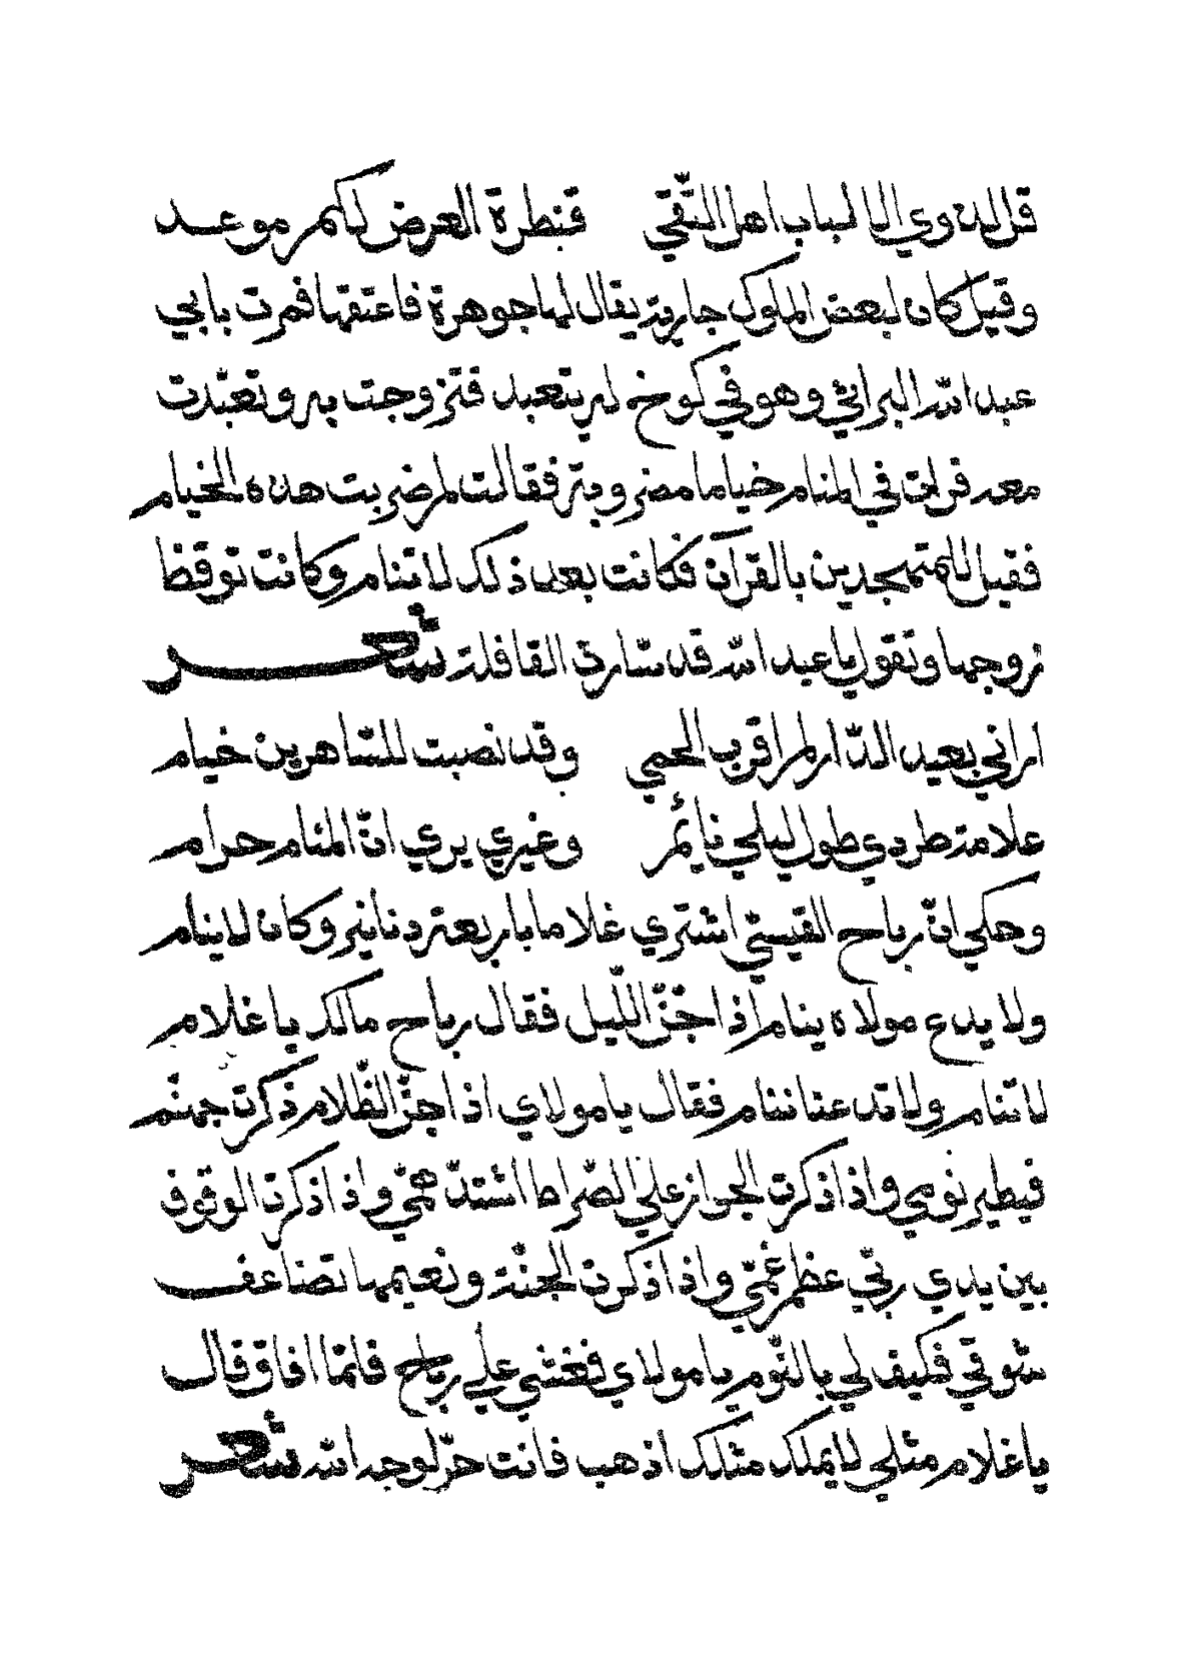 قل لذوي الالباب اهل التقي قنطرة العرض لكم موعد
وقيل كان لبعض الملوك جارية يقال لها جوهرة فاعتقتها فمرت بابي
عبد الله البراثي وهو في كوخ له يتعبد فتزوجت به وتعبّدت
معه فرات في المنام خياما مضروبة فقالت لم ضربت هذه الخيام
فقيل للمتهجدين بالقرآن فكانت بعد ذلك لا تنام وكانت توقظ
زوجها وتقول يا عبد الله قد سارت القافلة شعر
اراني بعيد الدّار لم اقرب الحمي وقد نصبت للسّاهرين خيام
علامة طردي طول ليلي نائم وغيري يري انّ المنام حرام
وحكي انّ رباح القيسيّ اشتري غلاما باربعة دنانير وكان لا ينام
ولا يدع مولاه ينام اذا جنّ اللّيل فقال رباح مالك يا غلام
لا تنام ولا تدعنا ننام فقال يا مولاي اذا جنّ الظّلام ذكرت جهنّم
فيطير نومي واذا ذكرت الجواز علي الصّراط اشتدّ همّي واذا ذكرت الوقوف
بين يدي ربّي عظم غمّي واذا ذكرت الجنّة ونعيمها تضاعف
شوقي فكيف لي بالنّوم يا مولاي فغشي علي رباح فلمّا افاق قال
يا غلام مثلي لا يملك مثلك اذهب فانت حرّ لوجه الله شعر